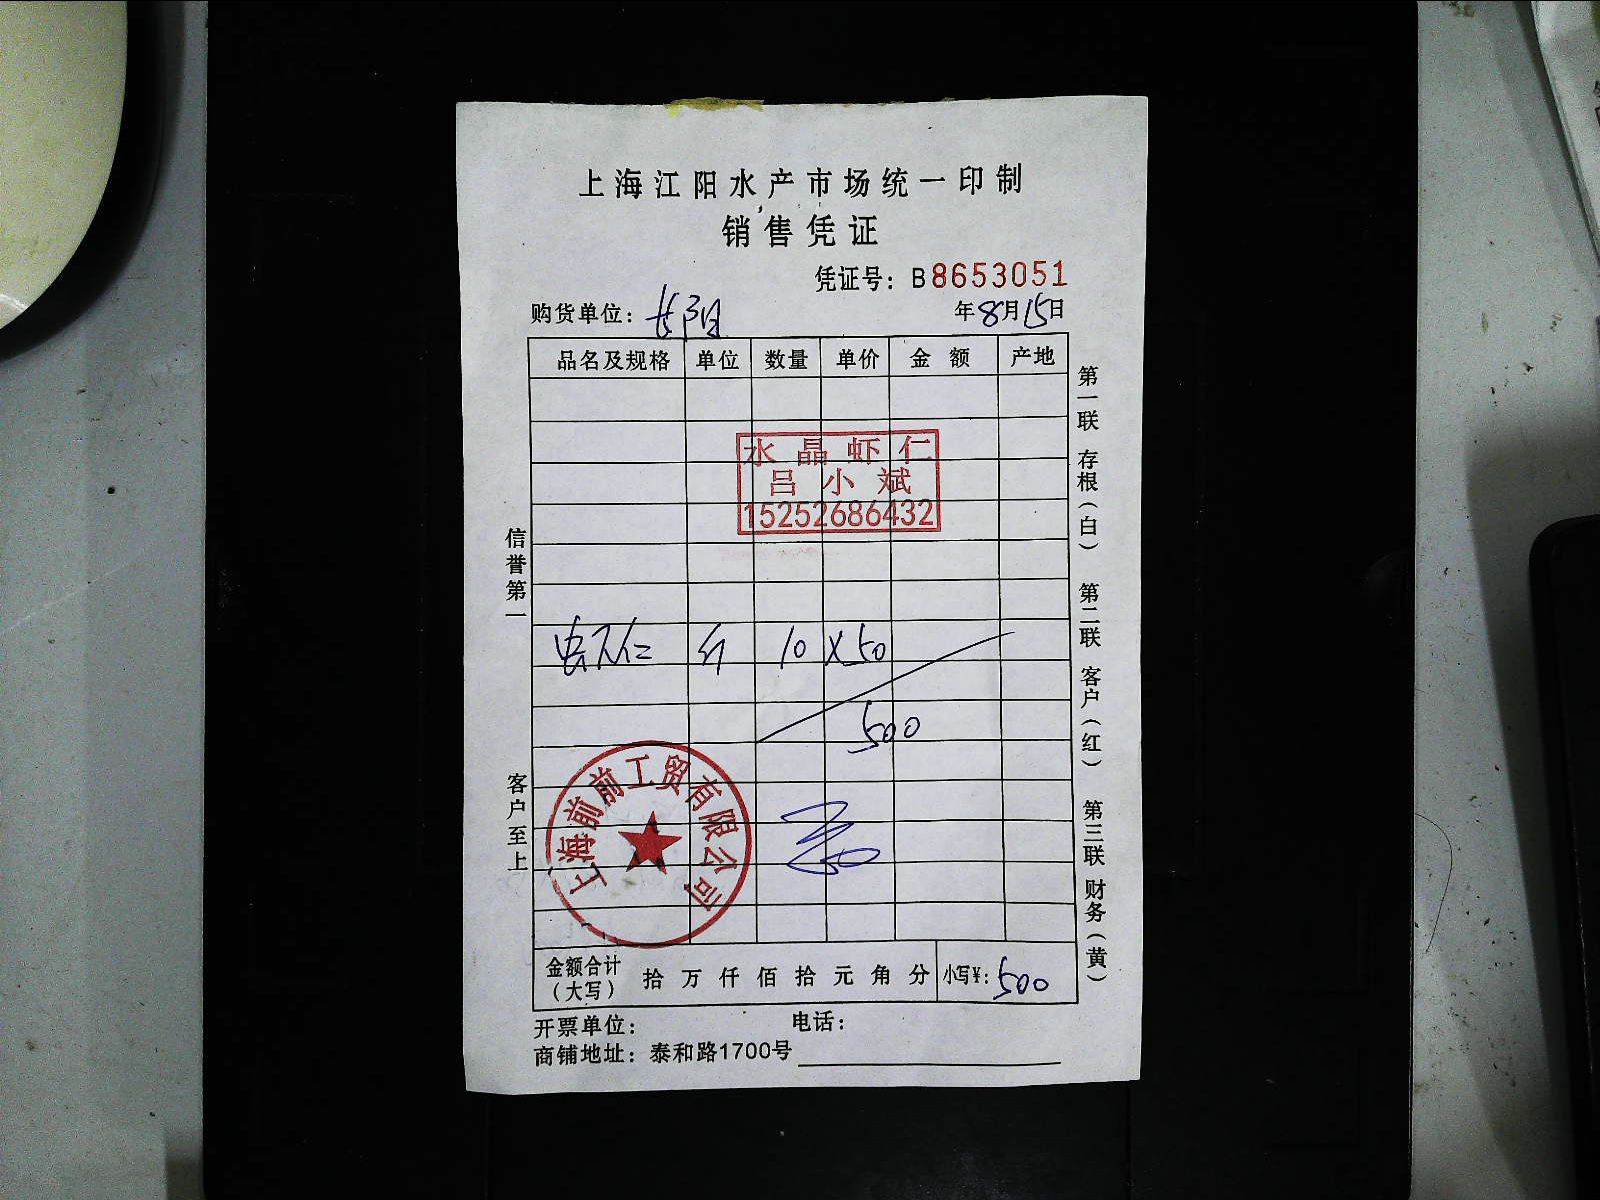 上海江阳水产市场统一印制
销售凭证
凭证号：B8653051
购货单位：长阳 年8月15日
品名及规格 单位 数量 单价 金额 产地
水晶虾仁
吕小斌
15252686432
虾仁 斤 10 ×50
500
上海前前工贸有限公司
金额合计（大写） 拾万仟佰拾元角分 小写¥：500
开票单位： 电话：
商铺地址：泰和路1700号
信誉第一 客户至上
第一联 存根（白） 第二联 客户（红） 第三联 财务（黄）